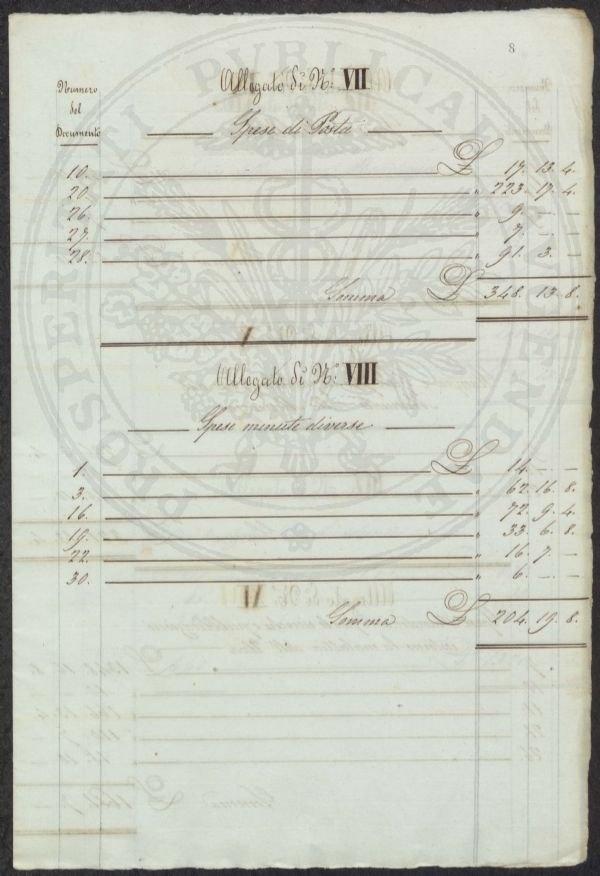 8
Allegato di N.º VII
Numero
del
Documento
Spese di Posta
10. £ 17. 13. 4.
20. " 223. 17. 4.
26. " 9. — —
27. " 7. — —
28. " 91. 3. —
Somma £ 348. 13. 8.
Allegato di N.º VIII
Spese minute diverse
1. £ 14. — —
3. " 62. 16. 8.
16. " 72. 9. 4.
19. " 33. 6. 8.
22. " 16. 7. —
30. " 6. — —
Somma £ 204. 19. 8.